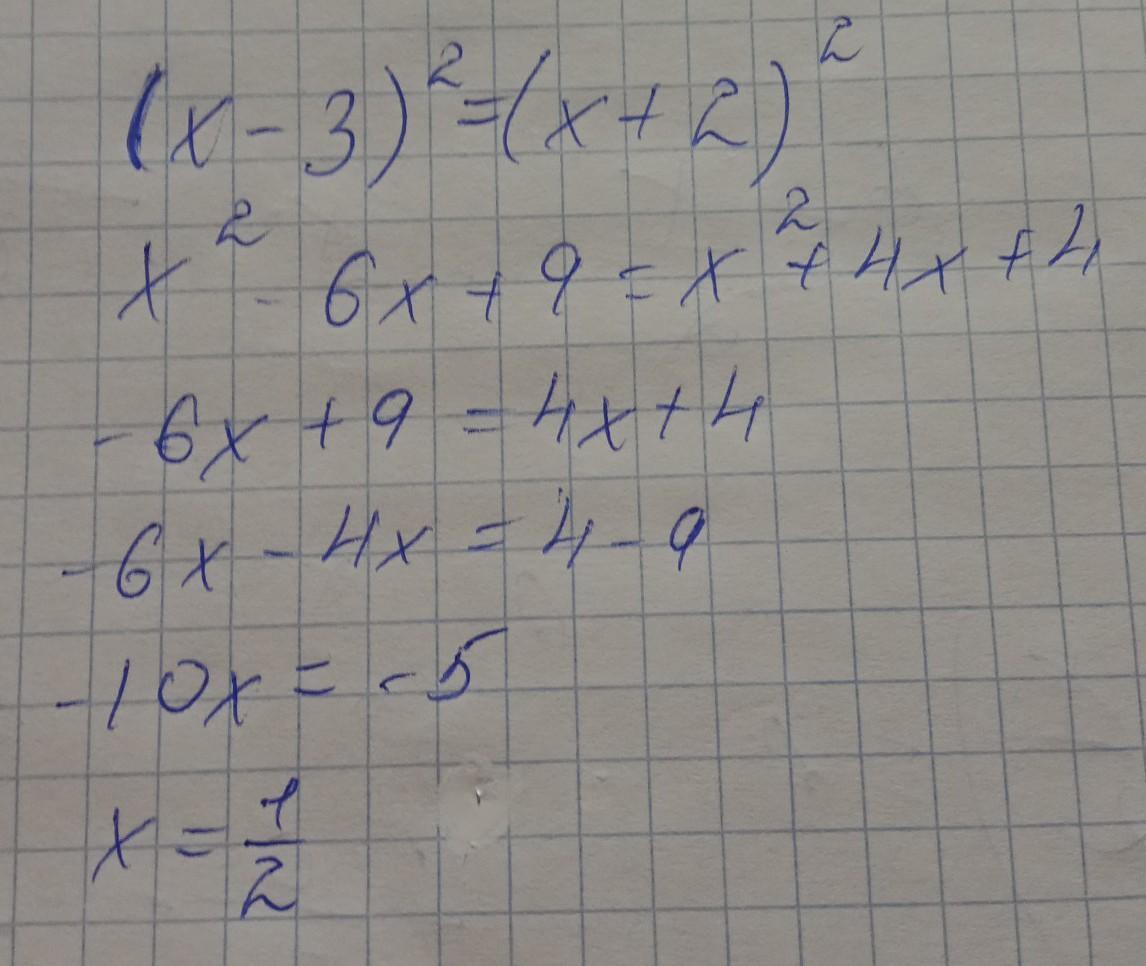 (x - 3)² = (x + 2)²
x² - 6x + 9 = x² + 4x + 4
-6x + 9 = 4x + 4
-6x - 4x = 4 - 9
-10x = -5
x = 1/2